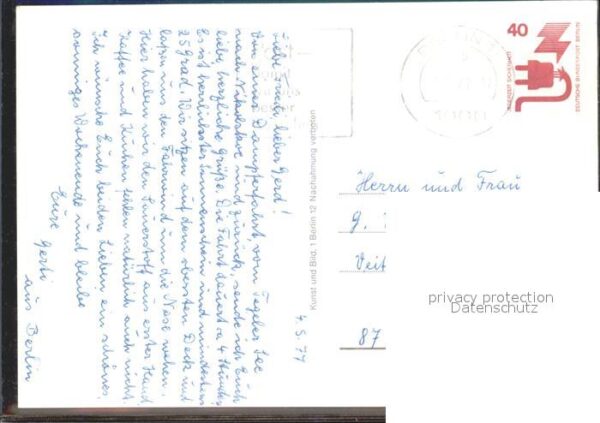 4.5.77
Liebe lieber Gerd!
Von einer Dampferfahrt, vom Tegeler See
nach und zurück, sende ich Euch
liebe herzliche Grüße. Die Fahrt dauert ca 4 Stunden
Es ist herrlichster Sonnenschein und mindestens
25 Grad. Wir sitzen auf dem obersten Deck und
laßen uns den Fahrwind um die Nase wehen.
Hier haben wir den Sauerstoff aus erster Hand
Kaffee und Kuchen fehlen natürlich auch nicht.
Ich wünsche Euch beiden Lieben ein schönes
sonniges Wochenende und bleibe
Eure Gerti
aus Berlin
Kunst und Bild, 1 Berlin 12 Nachahmung verboten
40
DEUTSCHE BUNDESPOST BERLIN
Herrn und Frau
G.
Veit
87
privacy protection
Datenschutz